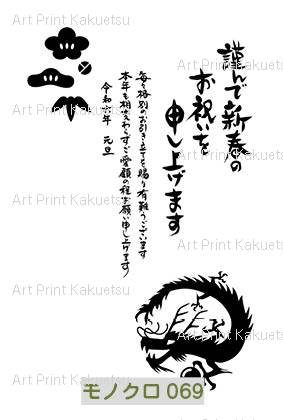 謹んで新春の
お祝いを
申し上げます
毎々格別のお引き立てを賜り有難うございます
本年も相変わらずご愛顧の程お願い申し上げます
令和六年 元旦
Art Print Kakuetsu
Art Print Kakuetsu
Art Print Kakuetsu
Art Print Kakuetsu
Art Print Kakuetsu
Art Print Kakuetsu
Art Print Kakuetsu
Art Print Kakuetsu
Art Print Kakuetsu
Art Print Kakuetsu
モノクロ 069